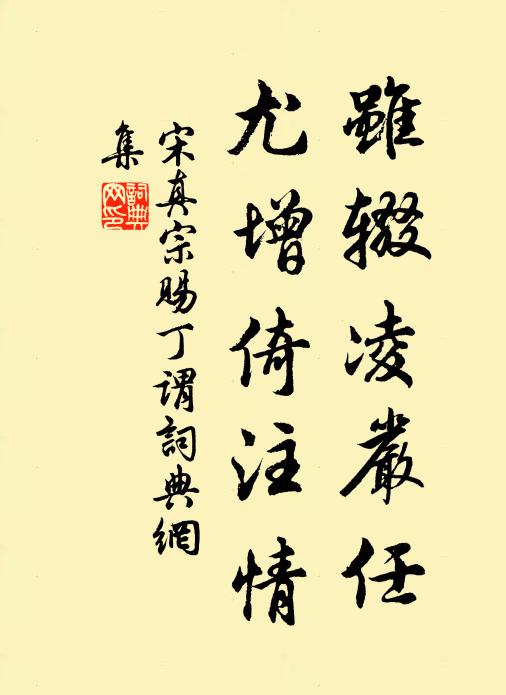 雖辍凌嚴任
尤增倚注情
宋真宗賜丁謂詞典網
集
詞典網印